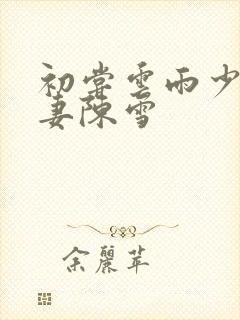 初尝雲雨少
妻陳雪
余麗苹